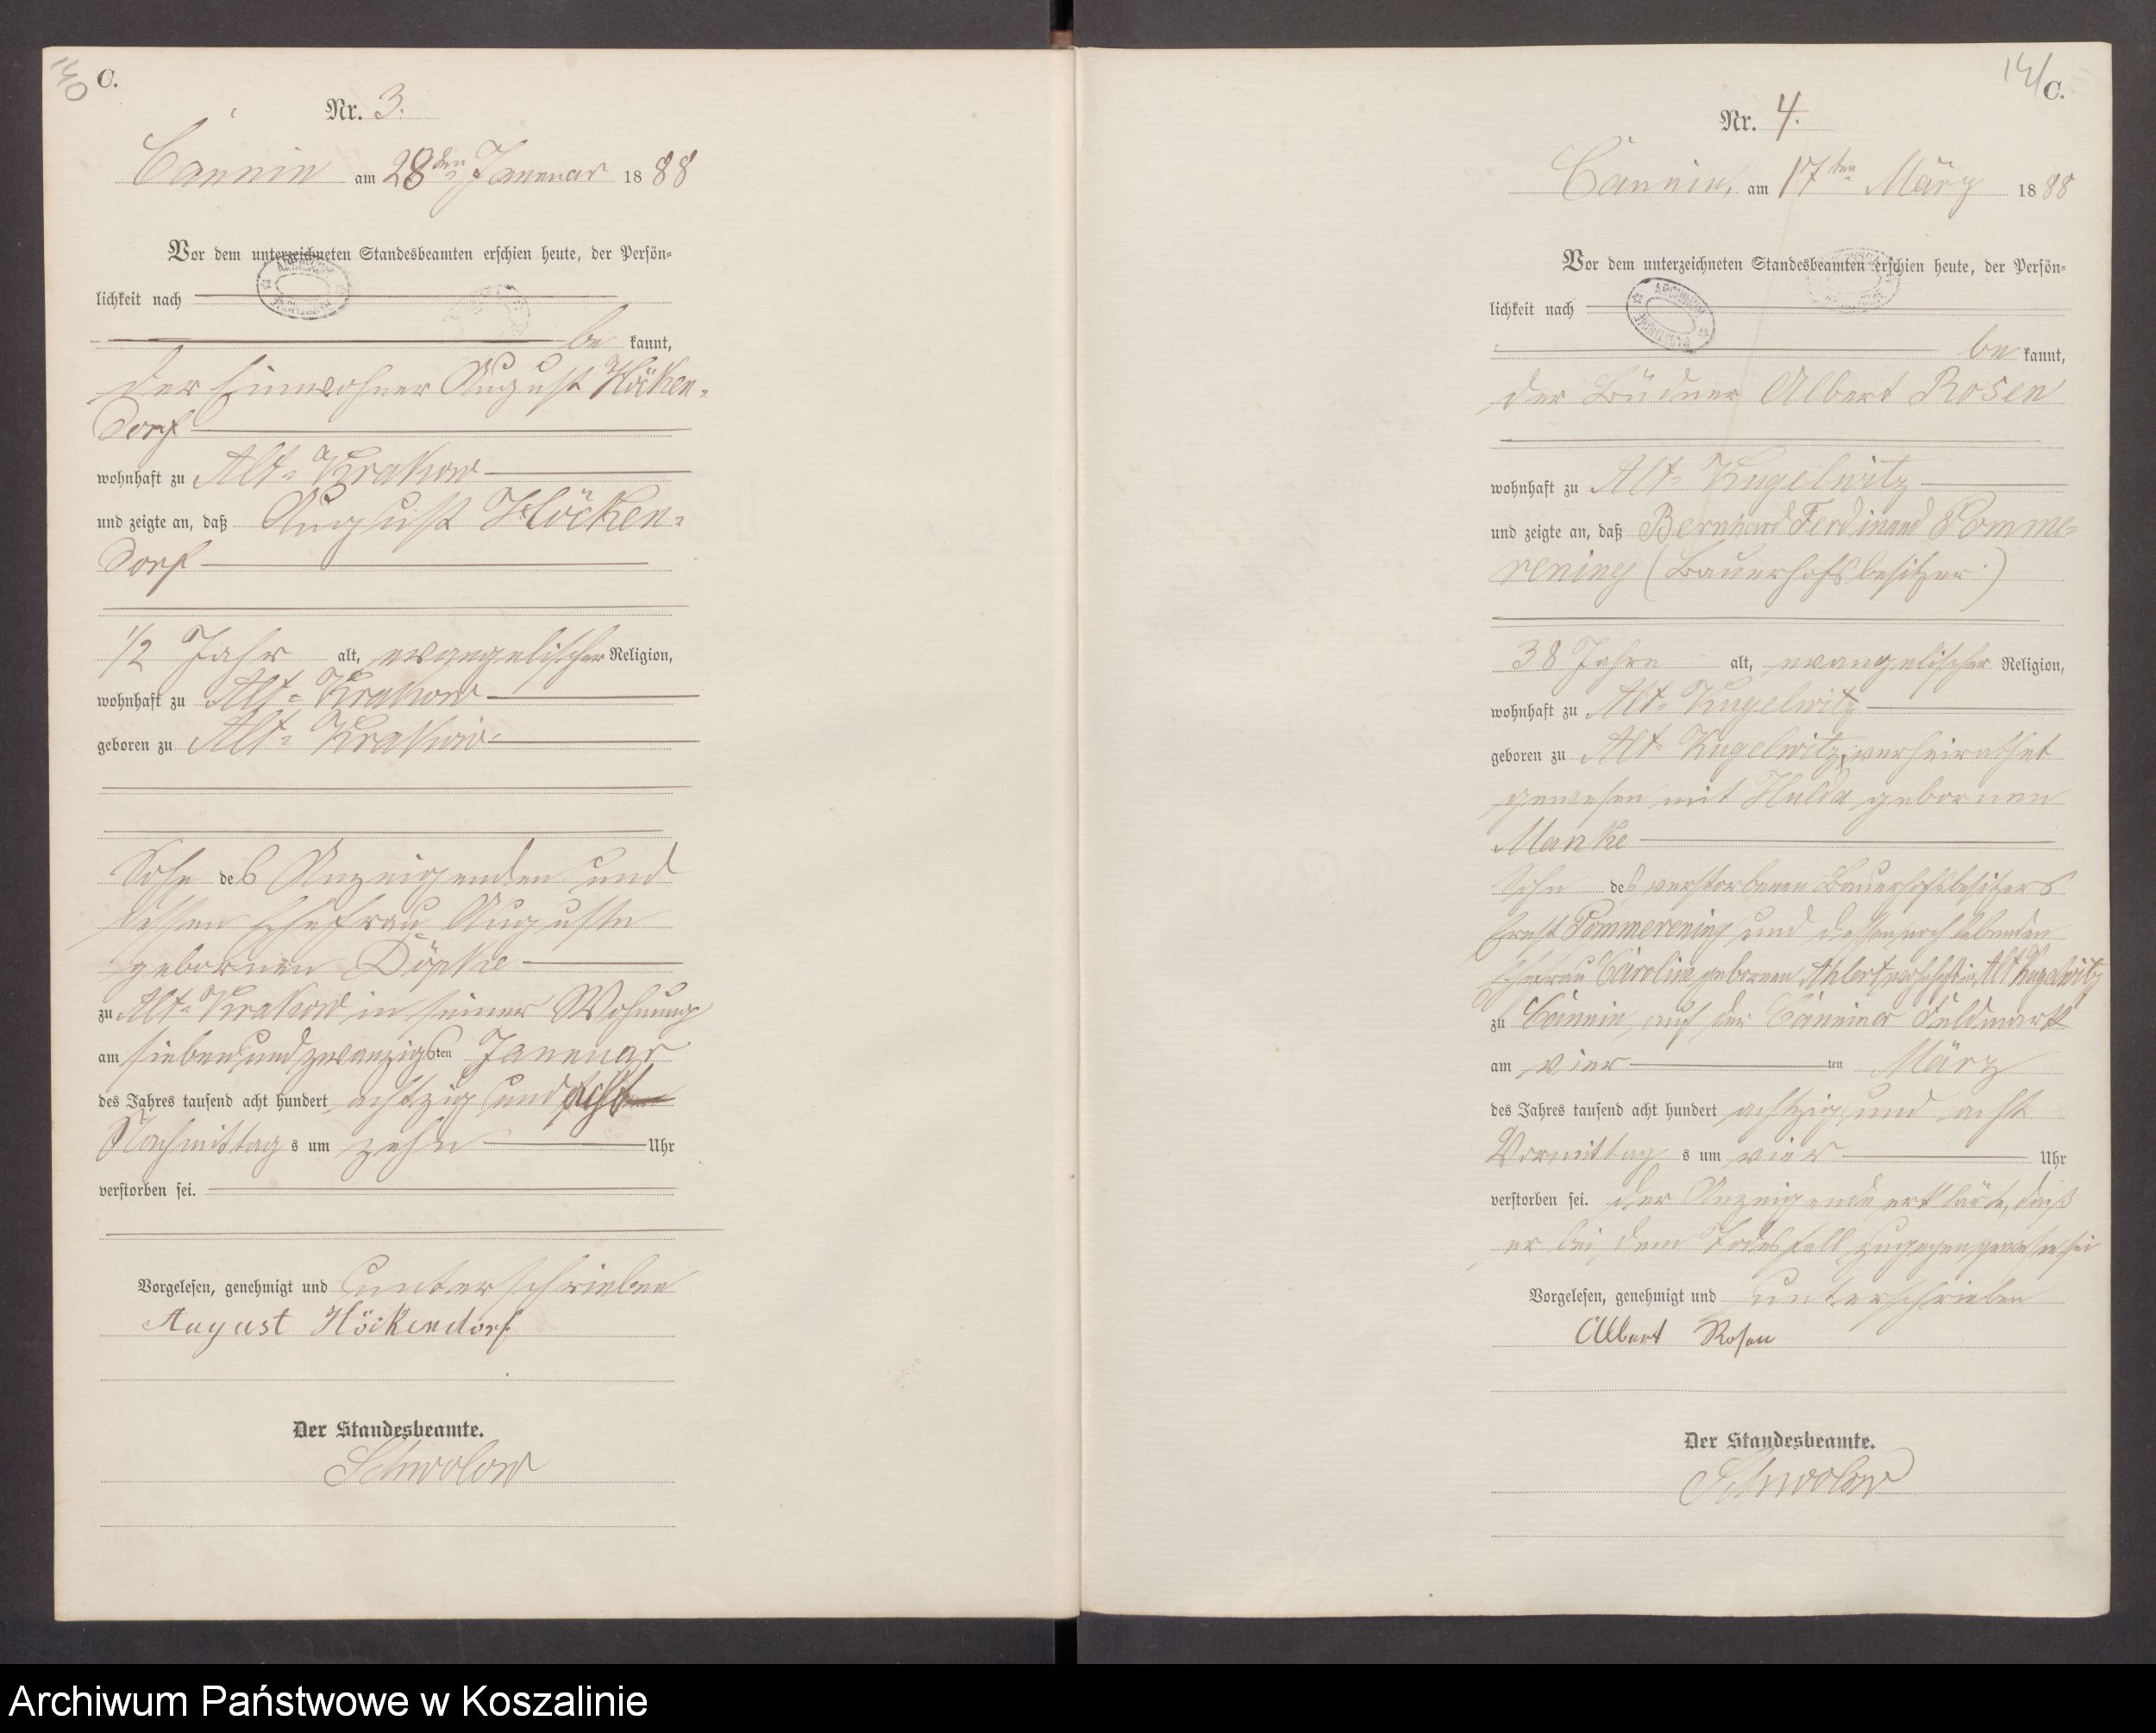 140
C.
Nr. 3.
Cannin am 28ten Januar 1888
Vor dem unterzeichneten Standesbeamten erschien heute, der Persön-
lichkeit nach
be kannt,
der Einwohner August Höcken-
dorf
wohnhaft zu Alt-Krakow
und zeigte an, daß August Höcken-
dorf
1/2 Jahr alt, evangelischer Religion,
wohnhaft zu Alt-Krakow
geboren zu Alt-Krakow
Sohn des Anzeigenden und
dessen Ehefrau Auguste
gebornen Döpke
zu Alt-Krakow in seiner Wohnung
am sieben und zwanzigsten Januar
des Jahres tausend acht hundert achtzig und acht
Nachmittag s um zehn Uhr
verstorben sei.
Vorgelesen, genehmigt und unterschrieben
August Höckendorf
Der Standesbeamte.
Schwolow
141
C.
Nr. 4.
Cannin, am 17ten März 1888
Vor dem unterzeichneten Standesbeamten erschien heute, der Persön-
lichkeit nach
be kannt,
der Büdner Albert Rosen
wohnhaft zu Alt-Kugelwitz
und zeigte an, daß Bernhard Ferdinand Pomme-
rening (Bauerhofsbesitzer)
38 Jahre alt, evangelischer Religion,
wohnhaft zu Alt-Kugelwitz
geboren zu Alt-Kugelwitz, verheirathet
gewesen mit Hulda gebornen
Manke
Sohn des verstorbenen Bauerhofsbesitzers
Ernst Pommerening und dessen noch lebenden
Ehefrau Caroline gebornen Ahlert wohnhaft in Alt Kugelwitz
zu Cannin auf der Canniner Feldmark
am vier ten März
des Jahres tausend acht hundert achtzig und acht
Vormittag s um vier Uhr
verstorben sei. der Anzeigende erklärte, daß
er bei dem Todesfall zugegen gewesen sei
Vorgelesen, genehmigt und unterschrieben
Albert Rosen
Der Standesbeamte.
Schwolow
Archiwum Państwowe w Koszalinie